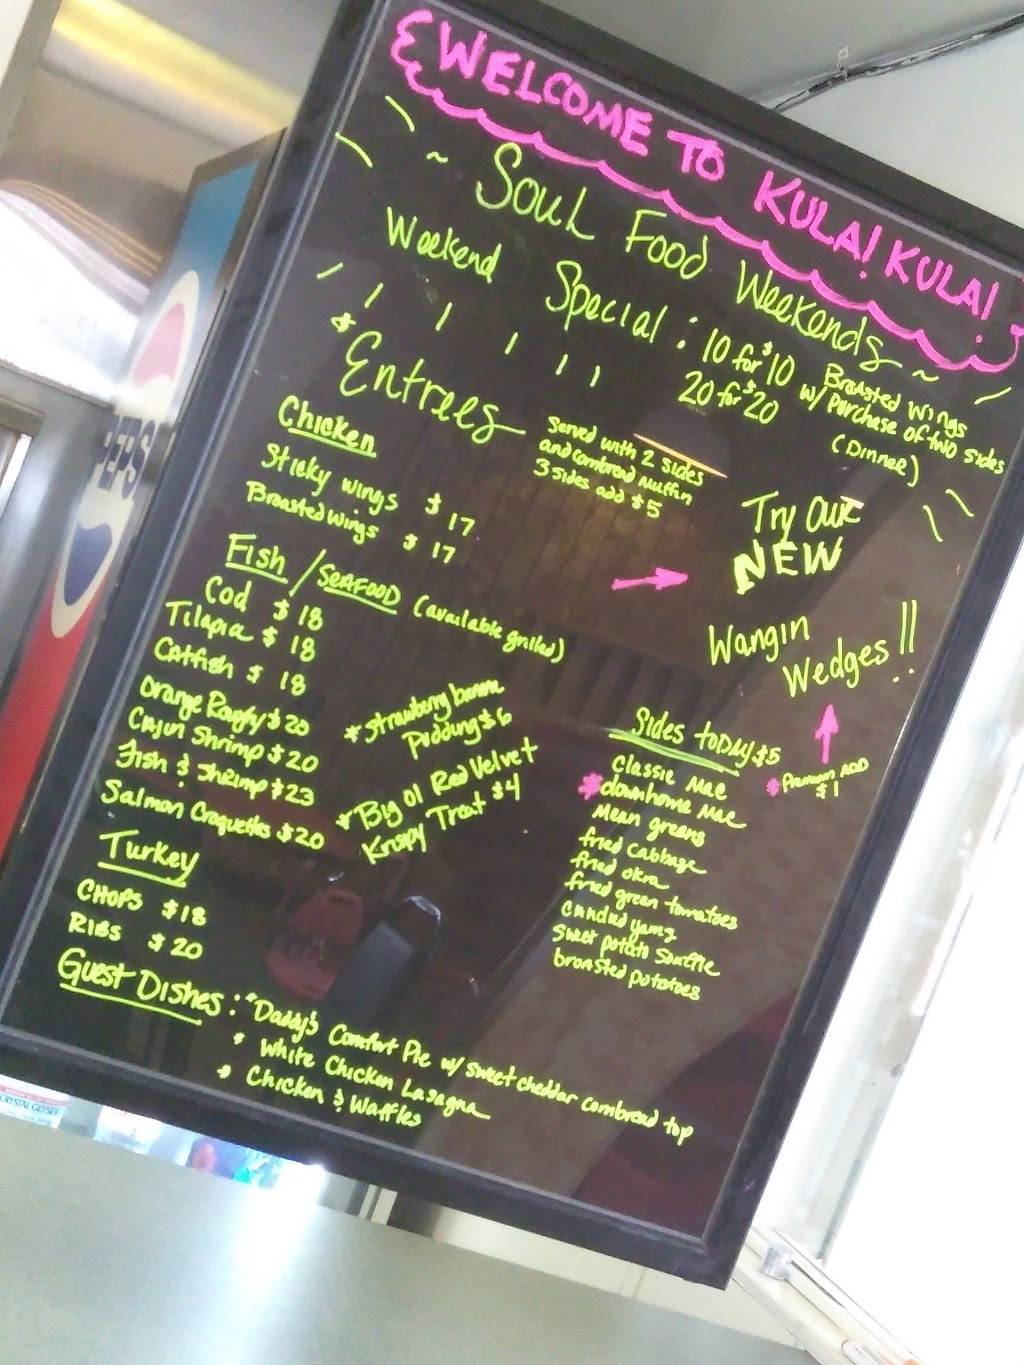 WELCOME TO KULA! KULA!
~ Soul Food Weekends ~
Weekend Special : 10 for $10 Broasted Wings
20 for $20 w/ Purchase of two sides
(Dinner)
Entrees
Served with 2 sides
and cornbread muffin
3 sides add $5
Chicken
Sticky wings $17
Broasted Wings $17
Fish / SEAFOOD (available grilled)
Cod $18
Tilapia $18
Catfish $18
Orange Roughy $20
Cajun Shrimp $20
Fish & Shrimp $23
Salmon Croquettes $20
* Strawberry banana
Pudding $6
* Big Ol Red Velvet
Krispy Treat $4
Turkey
CHOPS $18
RIBS $20
Try Our
NEW
Wangin
Wedges!!
Sides TODAY $5
* Premium ADD
$1
Classic Mac
* downhome Mac
Mean greens
fried Cabbage
fried okra
fried green tomatoes
Candied yams
Sweet potato Souffle
broasted potatoes
Guest Dishes : * Daddy's Comfort Pie w/ sweet cheddar cornbread top
* White Chicken Lasagna
* Chicken & Waffles
PEPSI
CRYSTAL GEYSER